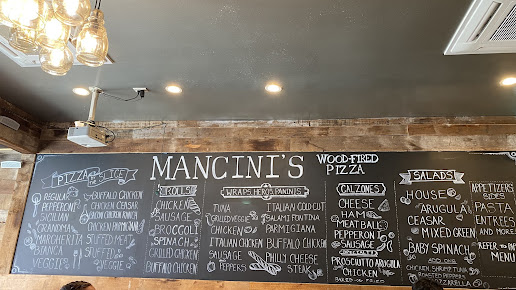 MANCINI'S
WOOD-FIRED
PIZZA
PIZZA BY THE SLICE
REGULAR
PEPPERONI
SICILIAN
GRANDMA
MARGHERITA
BIANCA
VEGGIE
BUFFALO CHICKEN
CHICKEN CEASAR
BACON CHICKEN RANCH
CHICKEN PARMESAN
STUFFED MEAT
STUFFED
VEGGIE
ROLLS
CHICKEN
SAUSAGE
BROCCOLI
SPINACH
GRILLED CHICKEN
BUFFALO CHICKEN
WRAPS, HEROS, PANINI'S
TUNA
GRILLED VEGGIE
CHICKEN
ITALIAN CHICKEN
SAUSAGE
PEPPERS
ITALIAN COLD CUT
SALAMI FONTINA
PARMIGIANA
BUFFALO CHICKEN
PHILLY CHEESE
STEAK
CALZONES
CHEESE
HAM
MEATBALL
PEPPERONI
SAUSAGE
PROSCIUTTO ARUGULA
CHICKEN
BAKED OR FRIED
SALADS
HOUSE
ARUGULA
CEASAR
MIXED GREEN
BABY SPINACH
ADD ONS
CHICKEN SHRIMP TUNA
ROASTED PEPPERS
MOZZARELLA
APPETIZERS
SIDES
PASTA
ENTREES
AND MORE
REFER TO
MENU